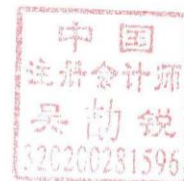 中国
注册会计师
吴劼锐
320200281596